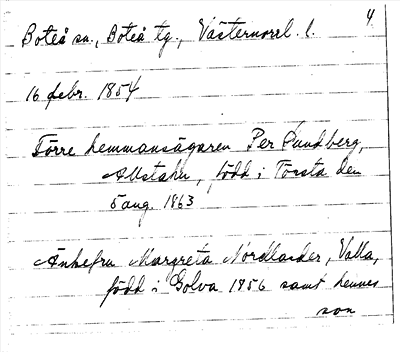 4
Boteå sn., Boteå tg., Västernorrl. l.
16 febr. 1854
Förre hemmansägaren Per Sundberg,
Allstahn, född i Torsta den
5 aug. 1863
Änkefru Margreta Nordlander, Valla,
född i Golva 1856 samt hennes
son